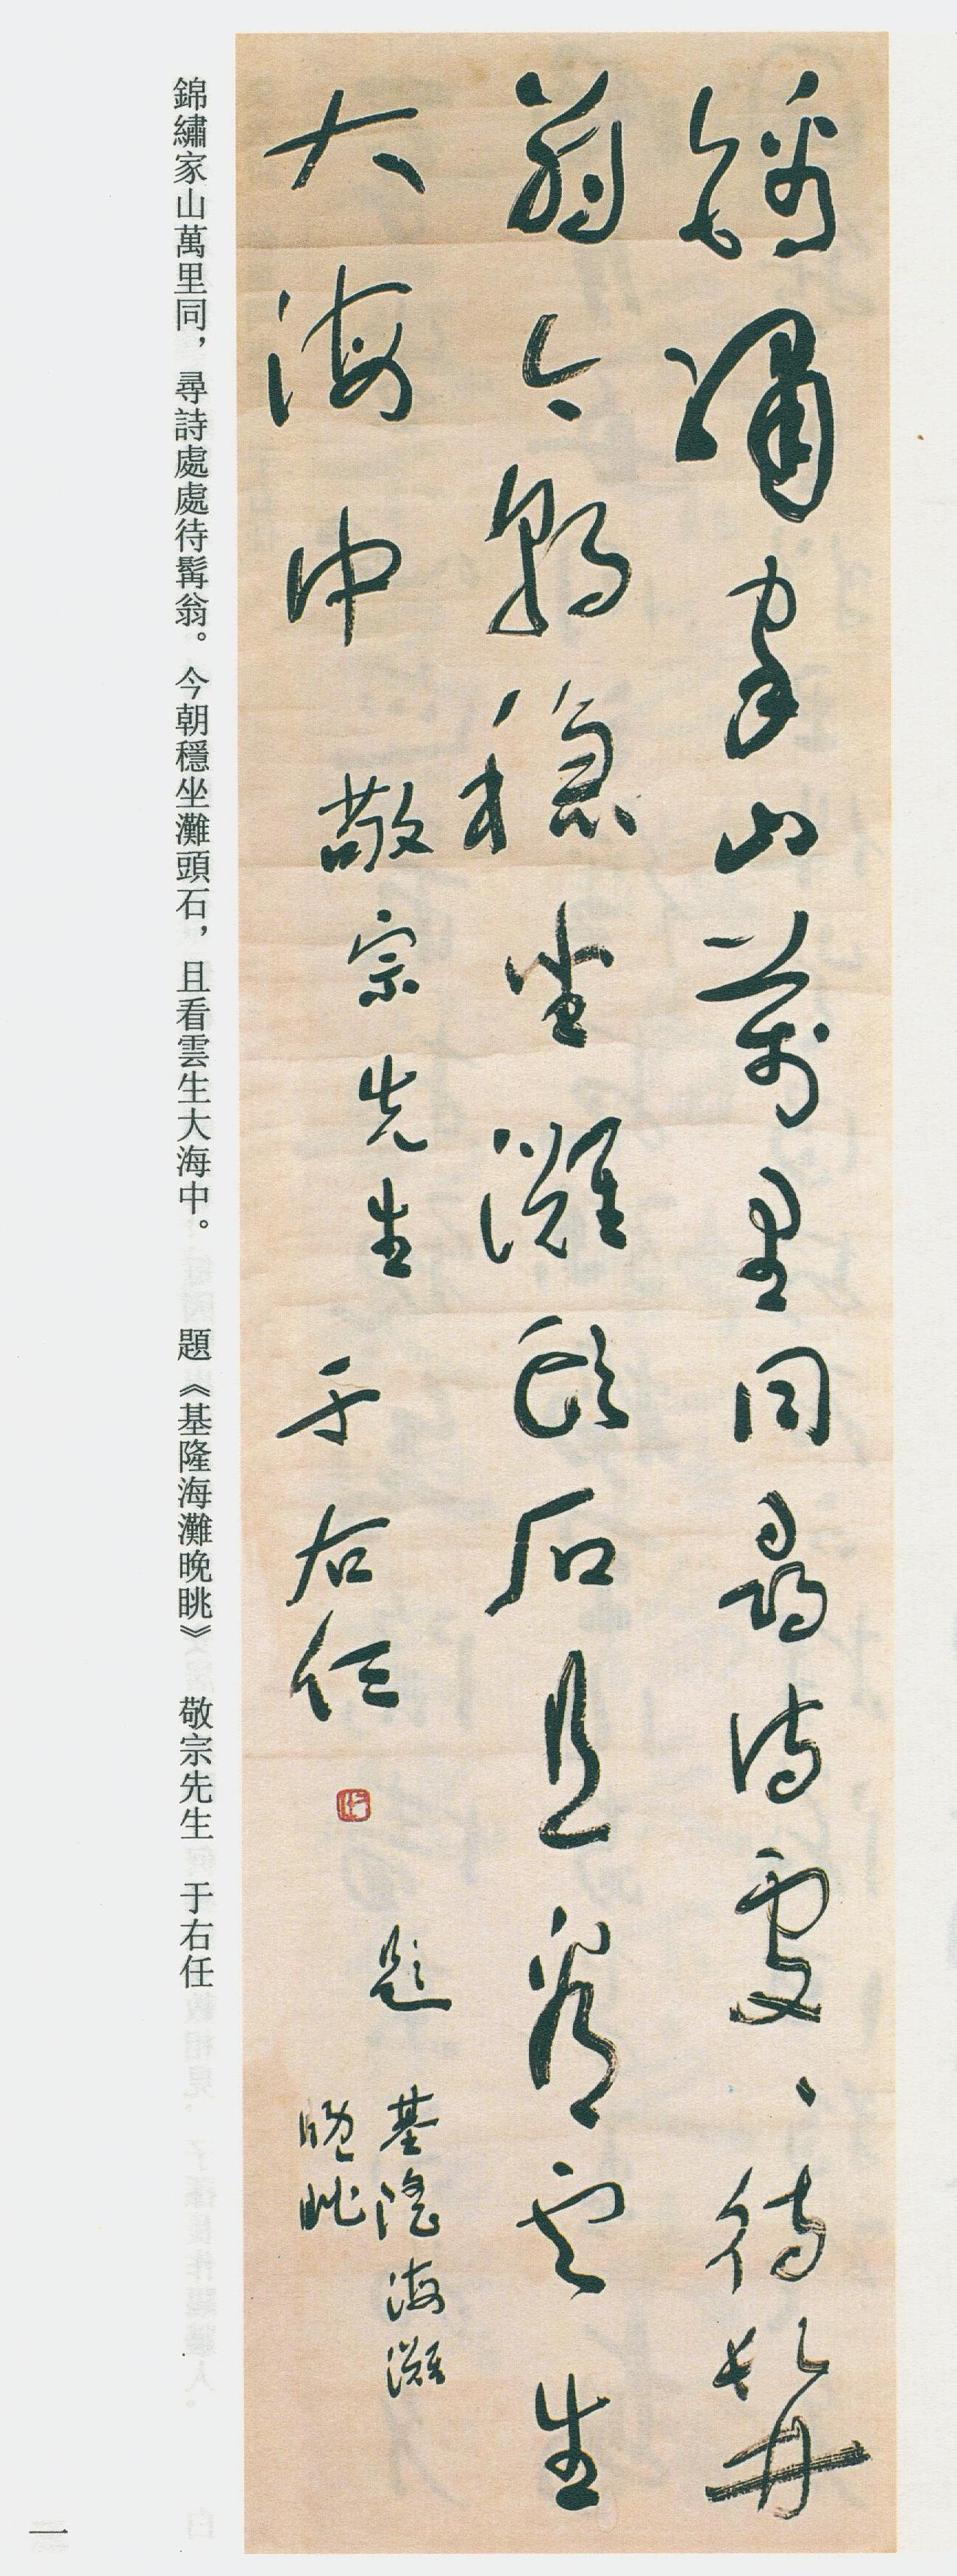 錦繡家山萬里同尋詩處々待髯
翁今朝穩坐灘頭石且看雲生
大海中 敬宗先生 于右任
題
基隆海灘
晚眺
錦繡家山萬里同，尋詩處處待髯翁。今朝穩坐灘頭石，且看雲生大海中。 題《基隆海灘晚眺》 敬宗先生 于右任
一